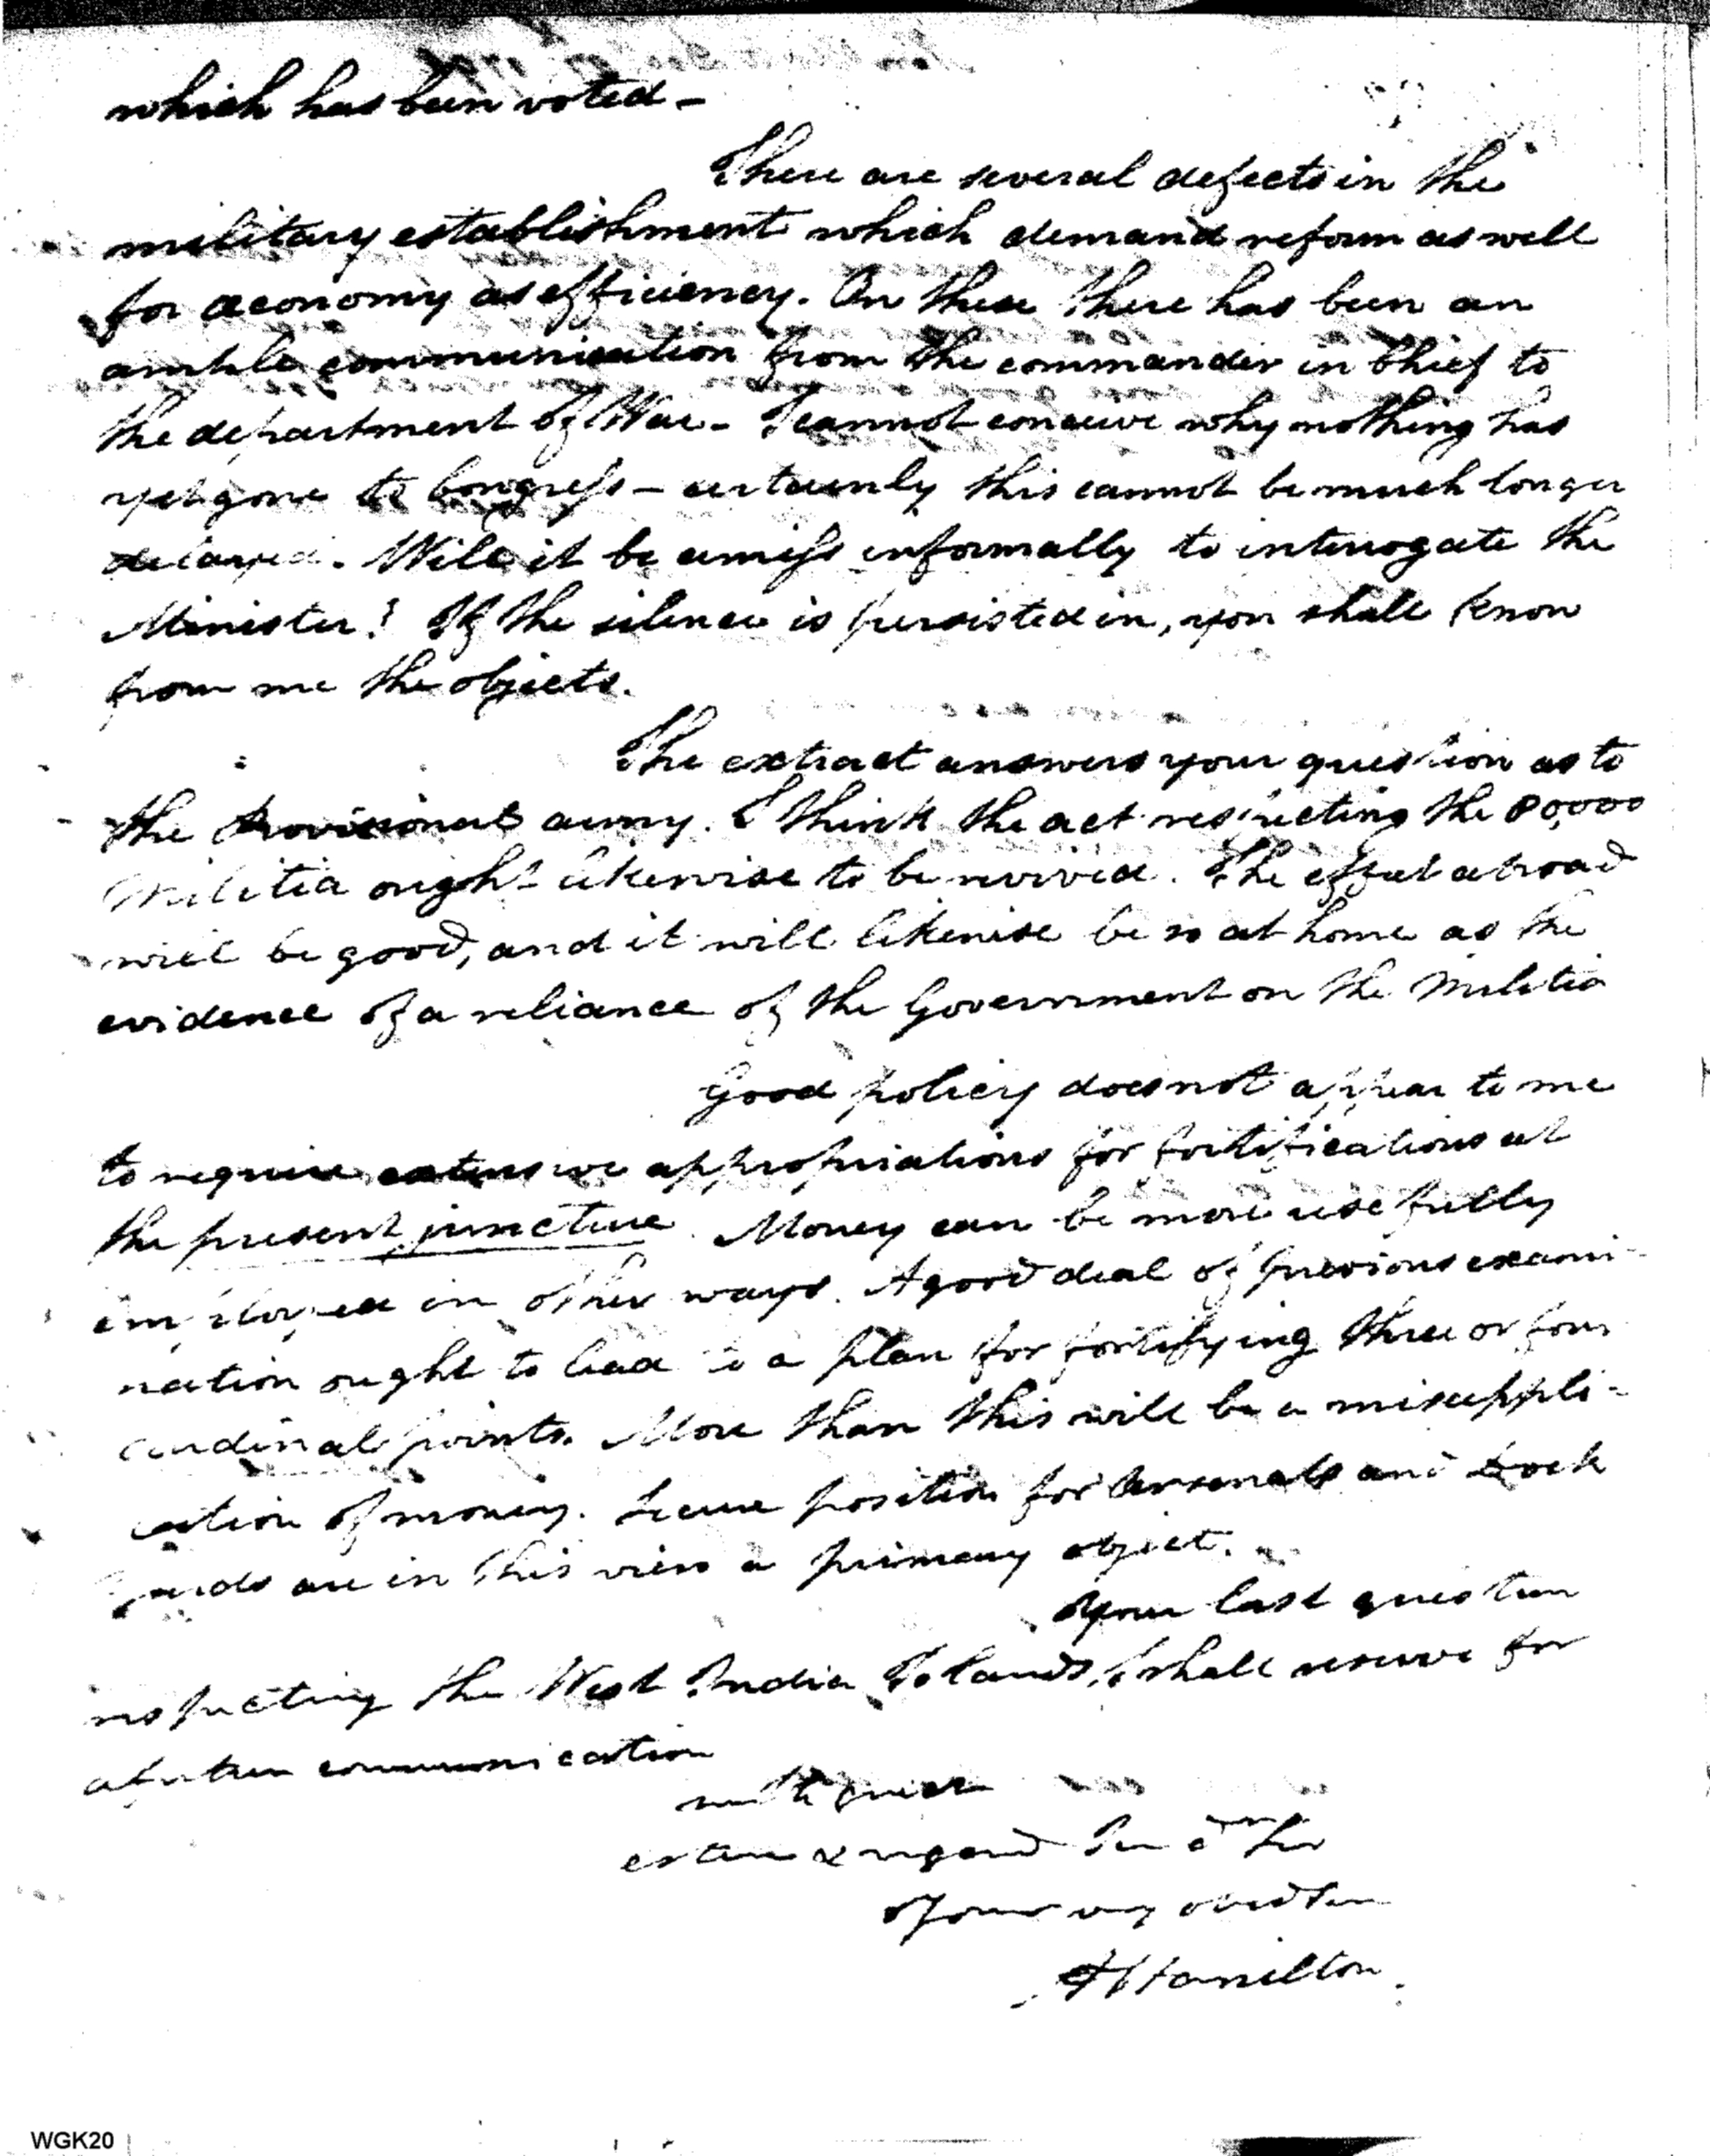 which has been voted –
There are several defects in the
military establishment which demand reform as well
for œconomy as efficiency. On these there has been an
ample communication from the commander in Chief to
the department of War – I cannot conceive why nothing has
yet gone to Congress – certainly this cannot be much longer
delayed. Will it be amiss informally to interrogate the
Minister? If the silence is persisted in, you shall know
from me the objects.
The extract answers your question as to
the Provisional army. I think the act respecting the 80,000
Militia ought likewise to be revived. The effect abroad
will be good, and it will likewise be so at home as the
evidence of a reliance of the Government on the Militia
Good policy does not appear to me
to require extensive appropriations for fortifications at
the present juncture. Money can be more usefully
employed in other ways. A good deal of previous exami-
nation ought to lead to a plan for fortifying three or four
cardinal points. More than this will be a misappli-
cation of money. Secure position for Arsenals and Dock
yards are in this view a primary object.
Your last question
respecting the West India Islands, I shall reserve for
a future communication
with great
esteem & regard I am Dr Sir
Your very obed ser
A Hamilton
WGK20